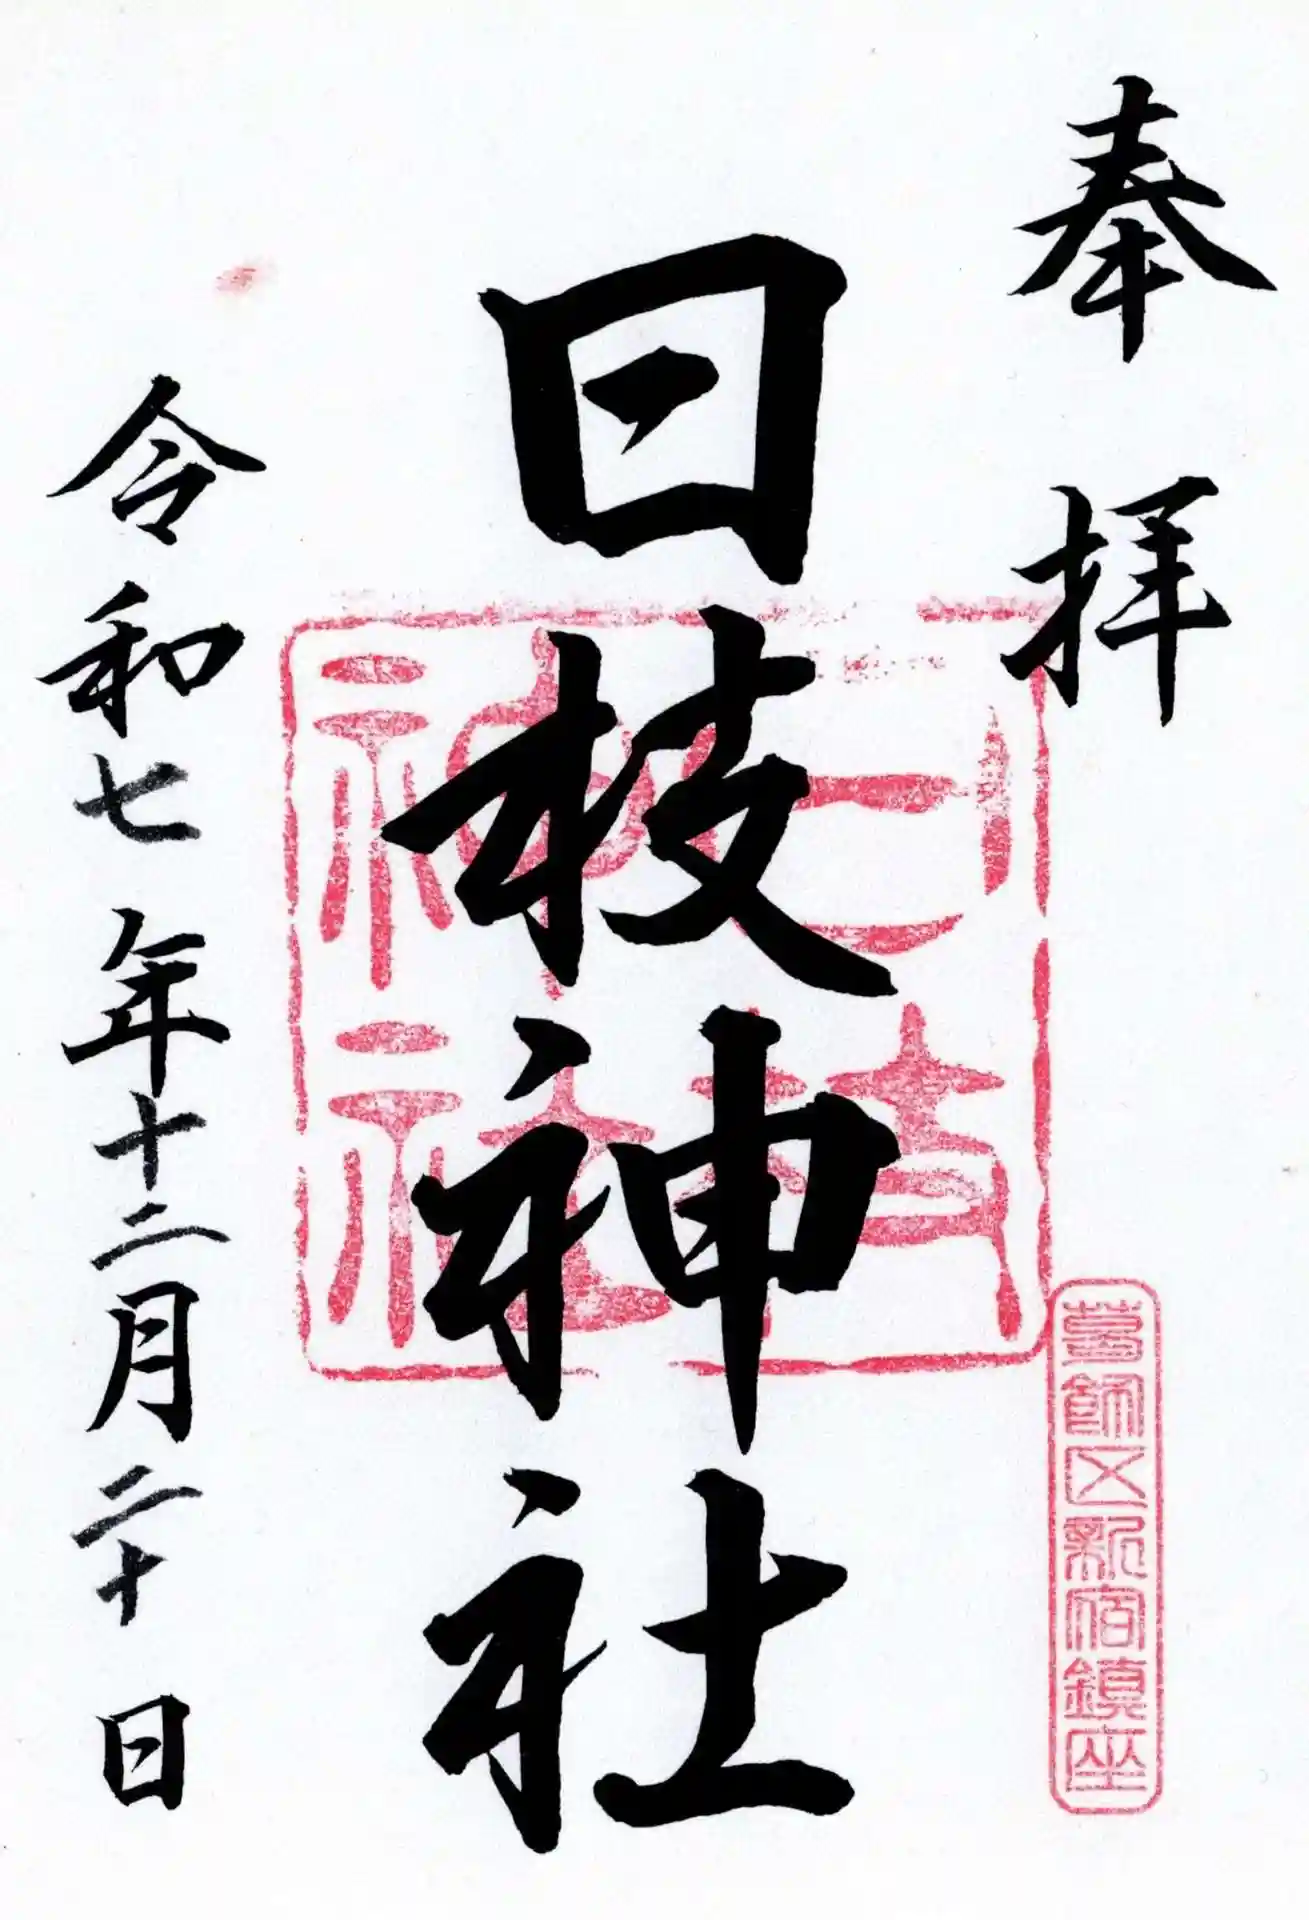 奉拝
葛飾区新宿鎮座
日枝神社
日枝神社
令和七年十二月二十日